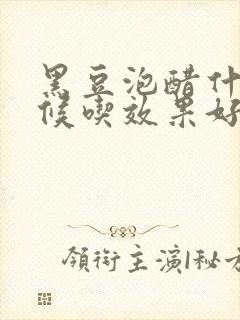 黑豆泡醋什
候喫效果好
領銜主演|秘方